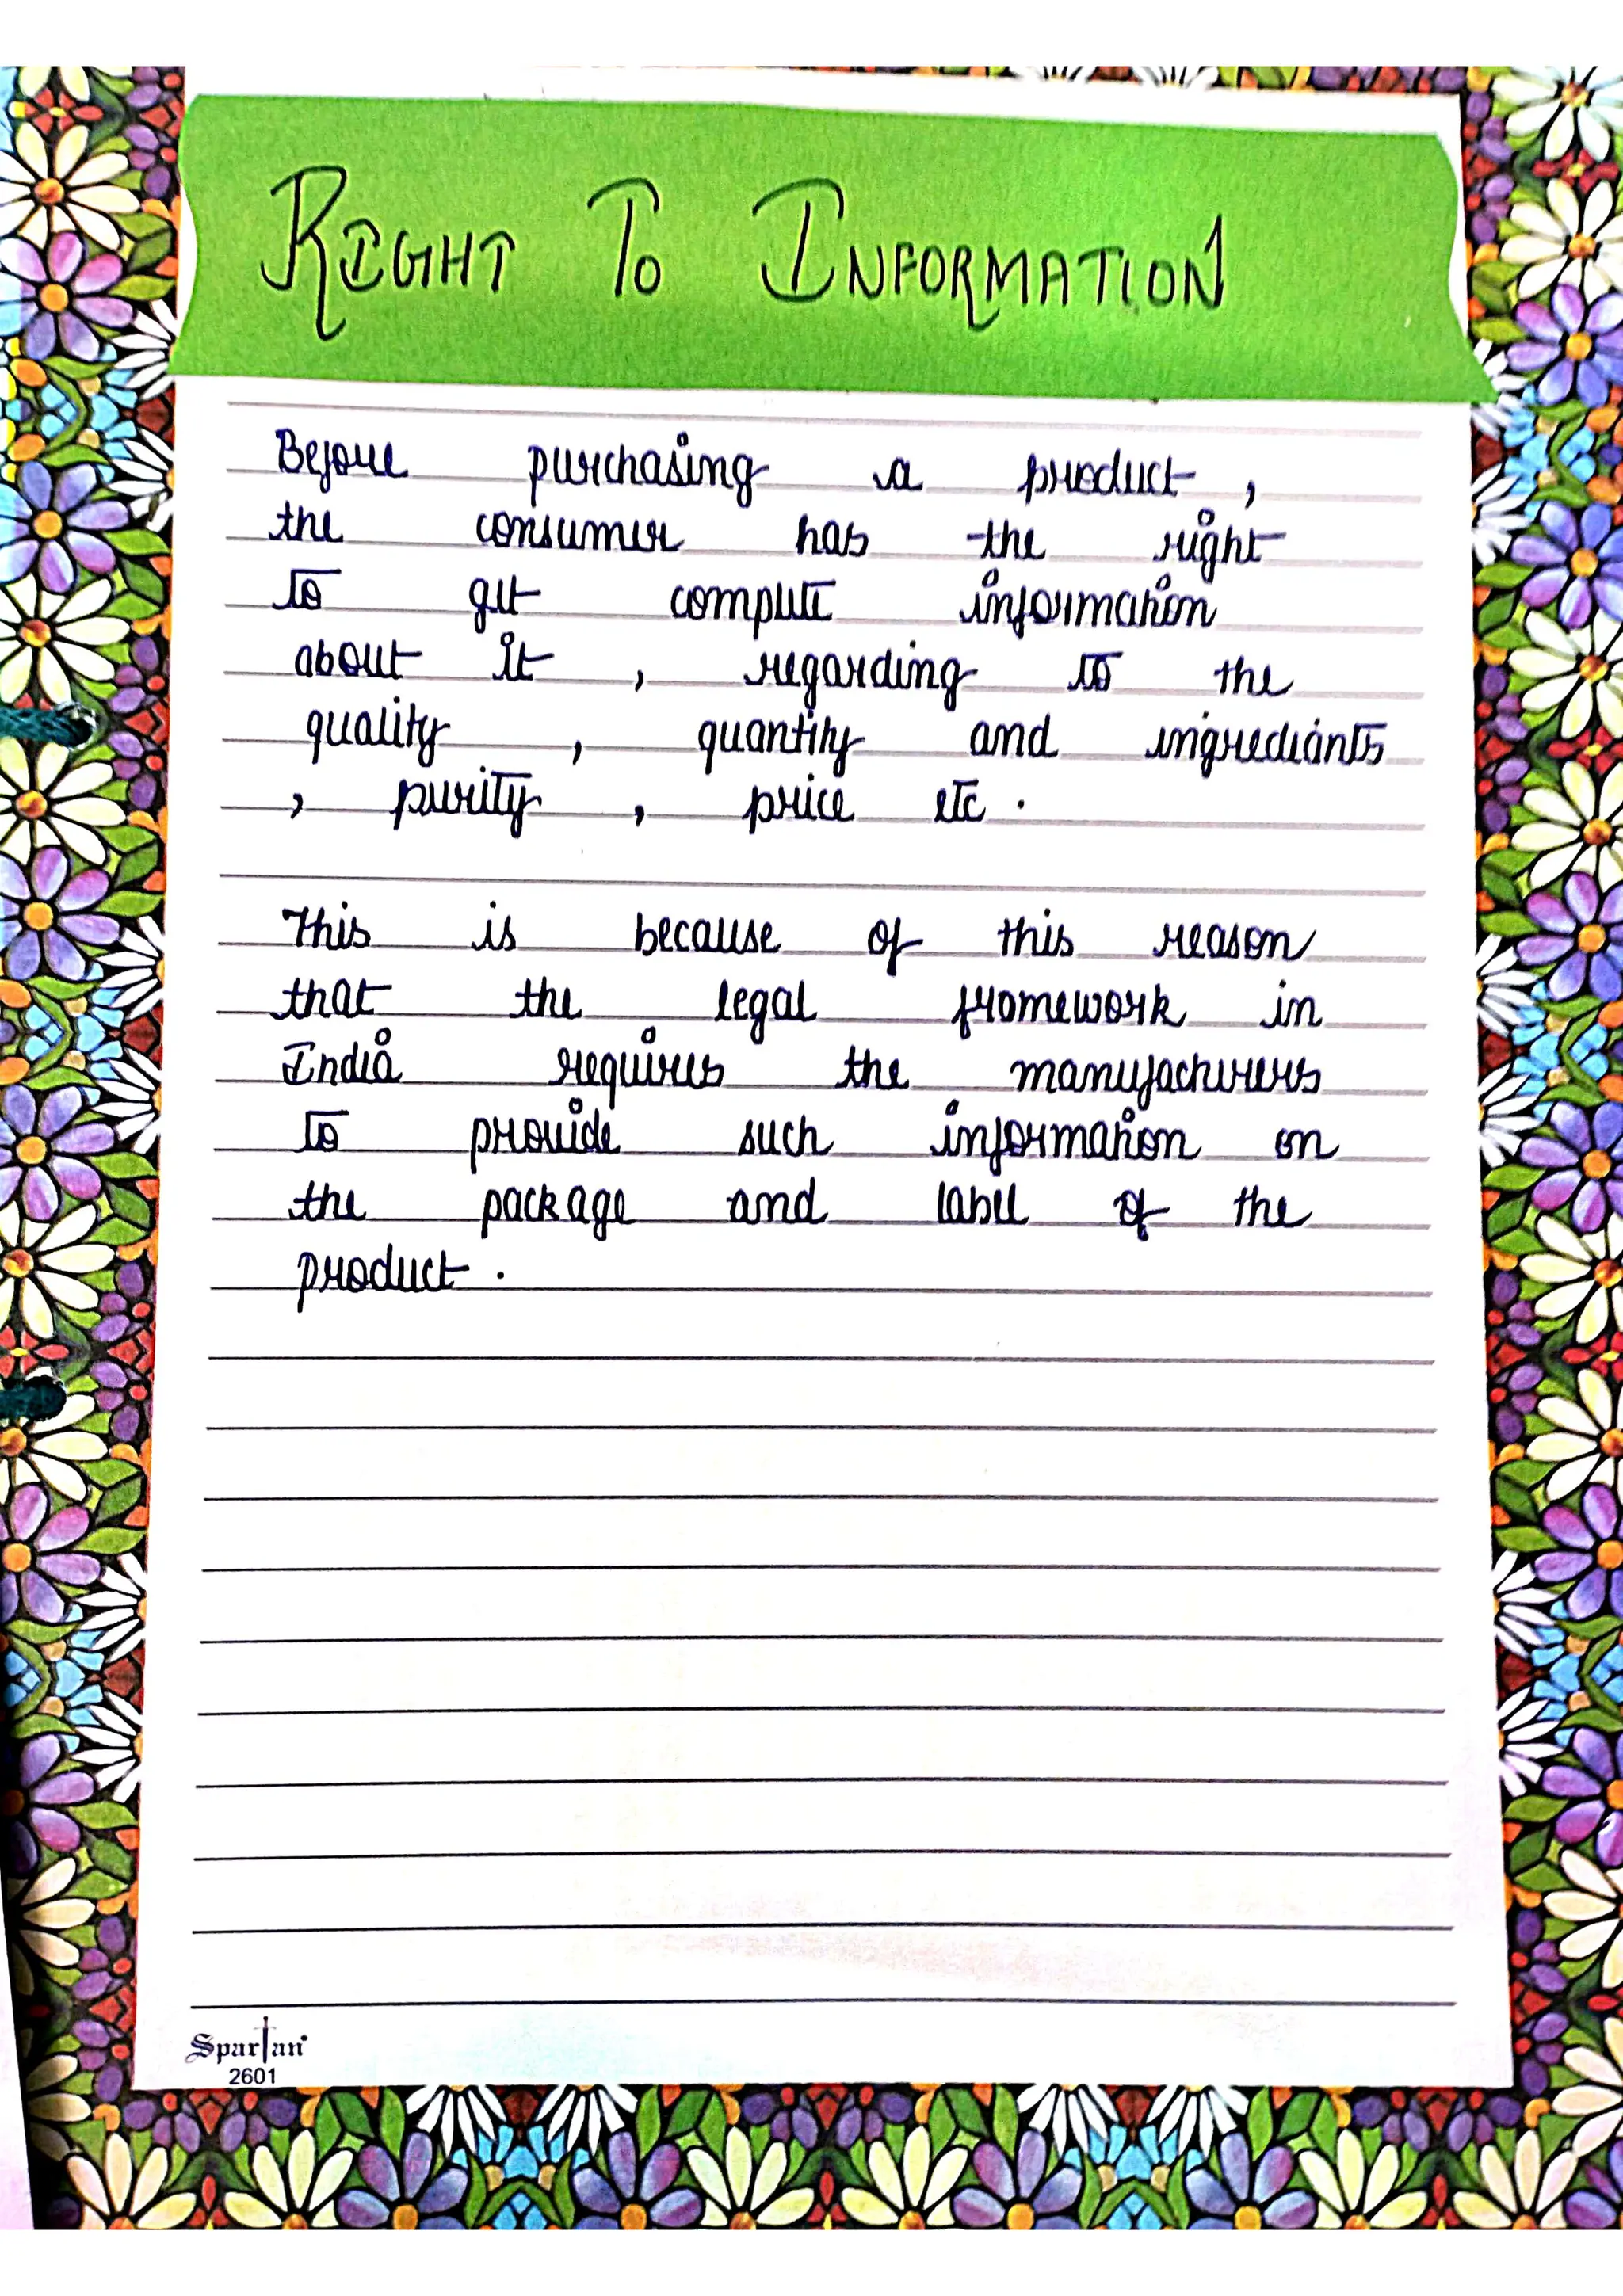 RIGHT TO INFORMATION
Before purchasing a product ,
the consumer has the right
to get complete information
about it , regarding to the
quality , quantity and ingredients
, purity , price etc .
This is because of this reason
that the legal framework in
India requires the manufacturers
to provide such information on
the package and label of the
product .
Spartan
2601